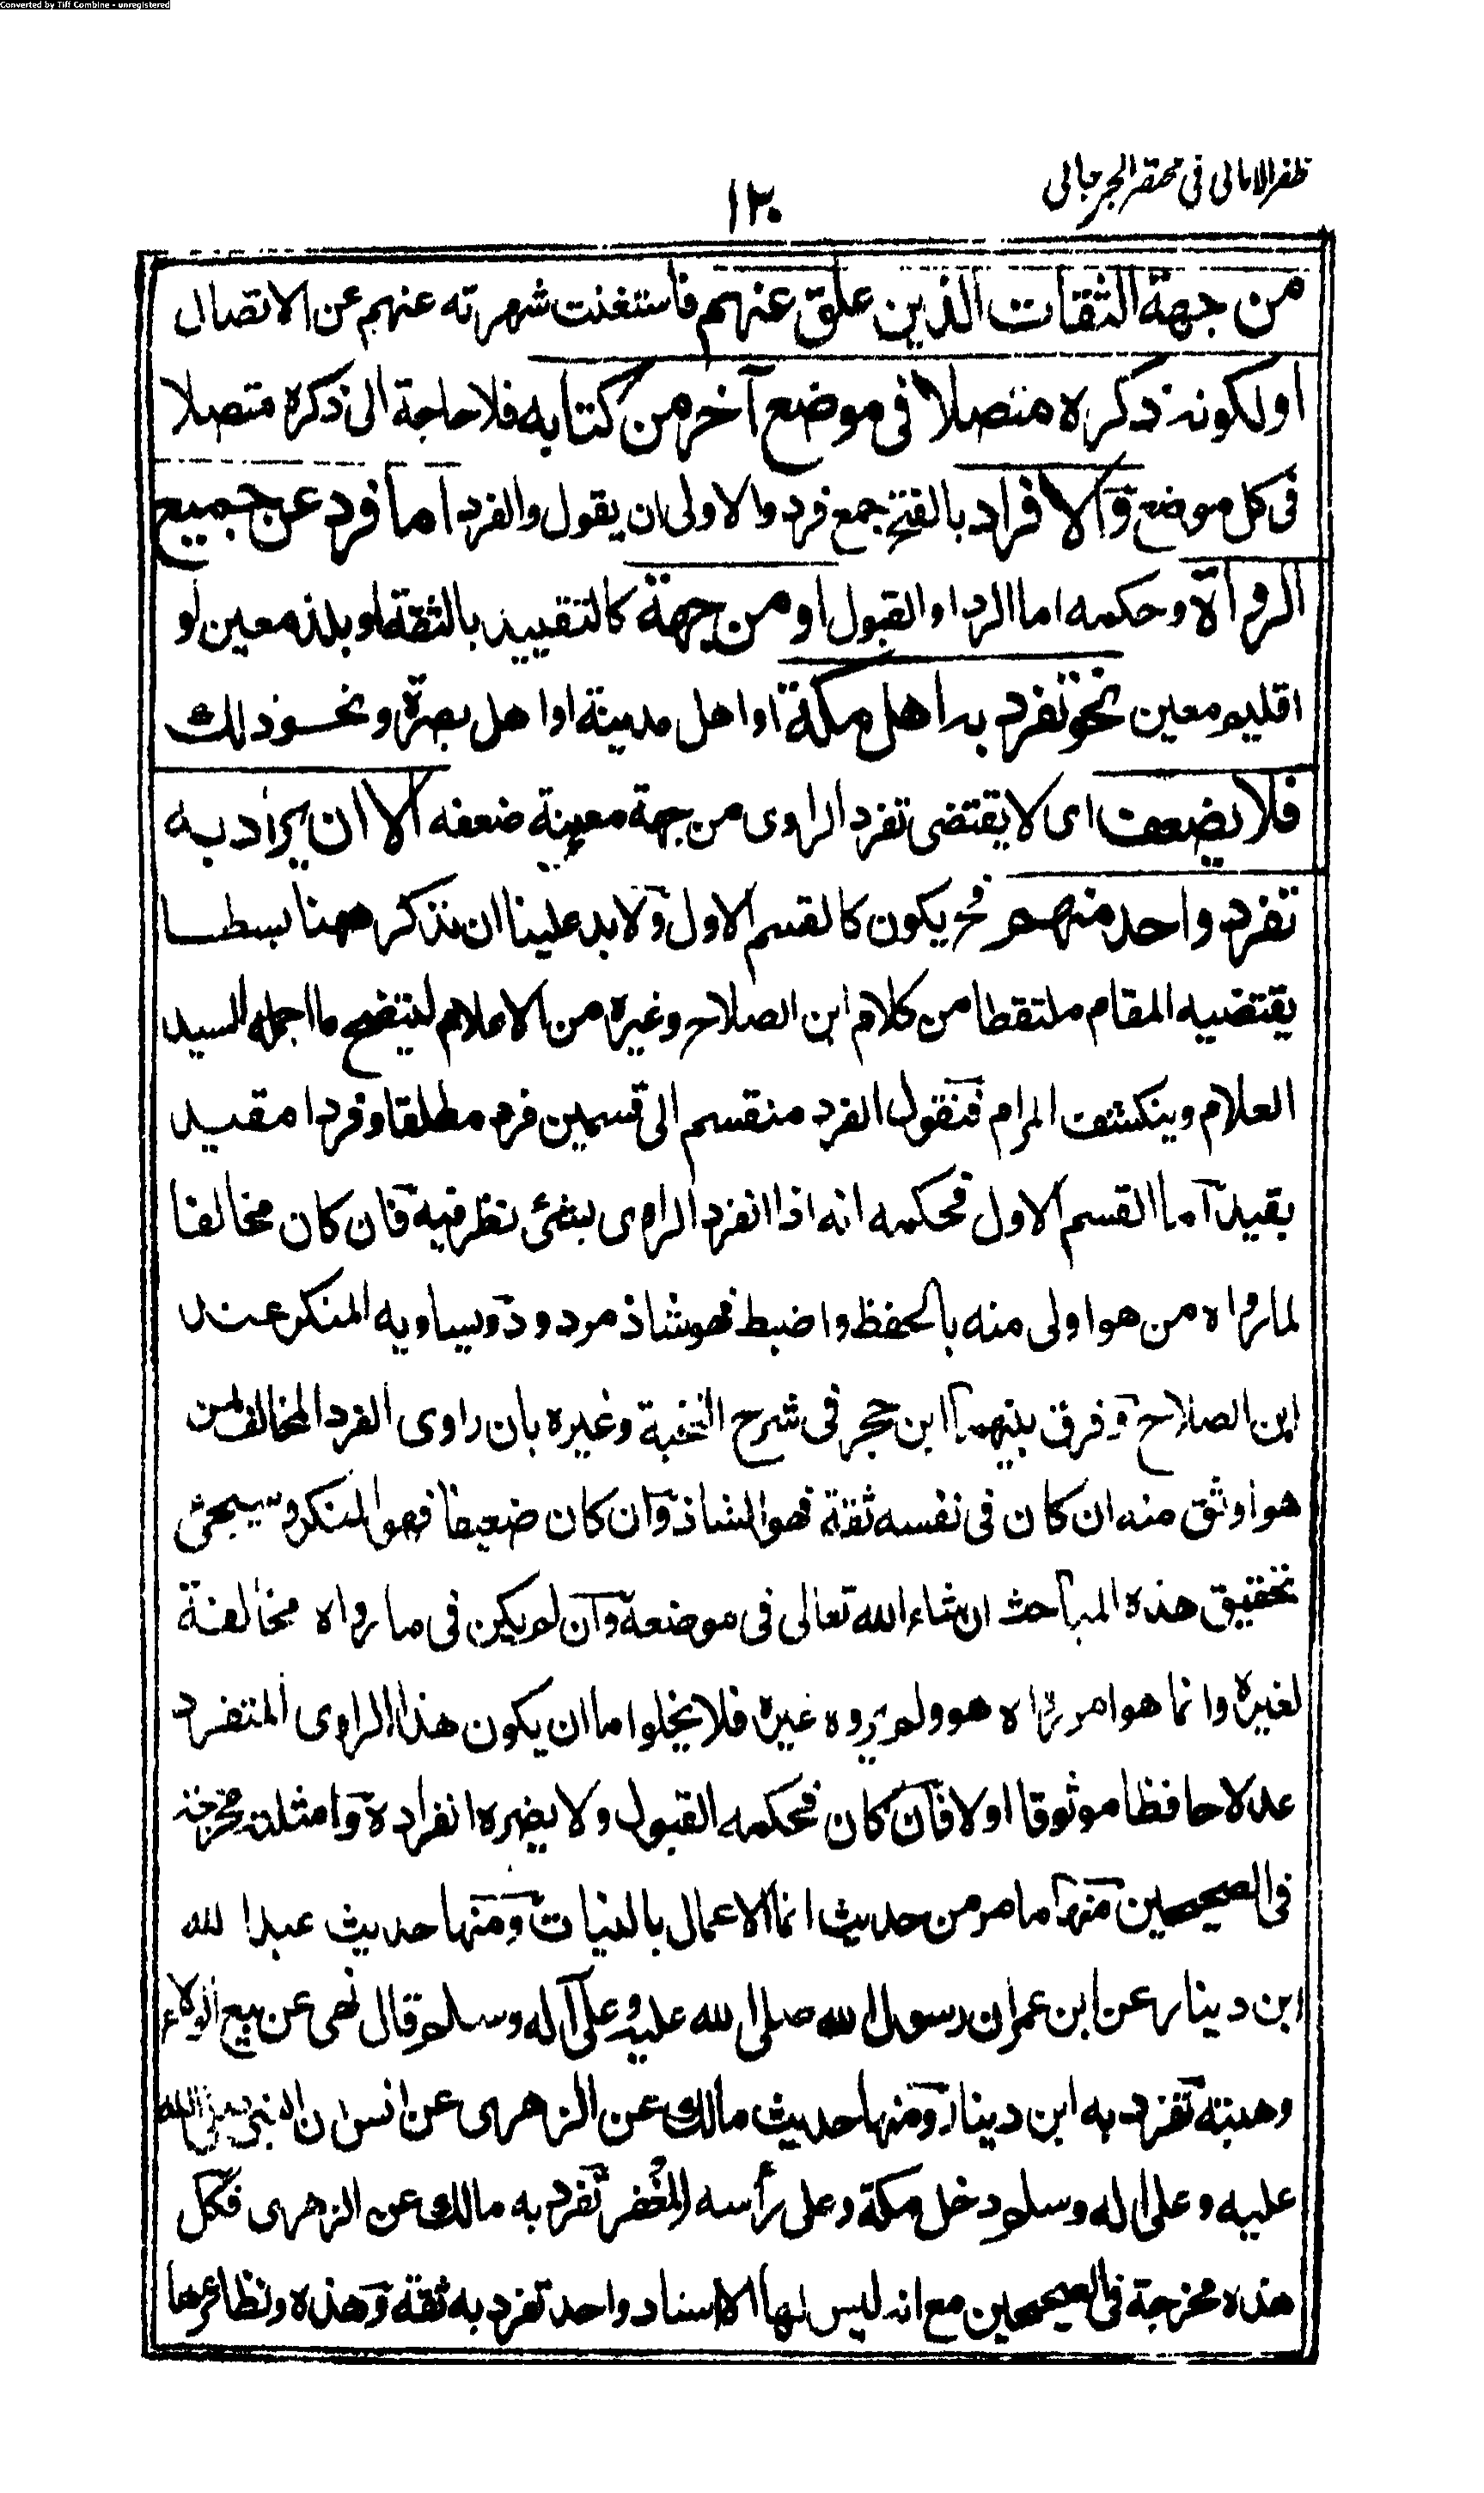 Converted by Tiff Combine - unregistered
ظفر الامالى فى مختصر الجرجانى
١٢٠
من جهة الثقات الذين علق عنهم فاستغنت شهرته عنهم عن الاتصال
او لكونه ذكره متصلا فى موضع آخر من كتابه فلا حاجة الى ذكره متصلا
فى كل موضع والافراد بالفتح جمع فرد والاولى ان يقول والفرد اما فرد عن جميع
الرواة وحكمه اما الرد او القبول او من جهة كالتقييد بالثقة او بلد معين او
اقليم معين نحو تفرد به اهل مكة او اهل مدينة او اهل بصرة ونحو ذلك
فلا يضعف اى لا يقتضى تفرد الراوى من جهة معينة ضعفه الا ان يراد به
تفرد واحد منهم فح يكون كالقسم الاول ولا بد علينا ان نذكر ههنا بسطا
يقتضيه المقام ملتقطا من كلام ابن الصلاح وغيره من الاعلام ليتضح ما اجمله السيد
العلام وينكشف المرام فنقول الفرد منقسم الى قسمين فرد مطلقا وفرد مقيد
بقيد اما القسم الاول فحكمه انه اذا انفرد الراوى بشئ نظر فيه فان كان مخالفا
لما رواه من هو اولى منه بالحفظ واضبط فهو شاذ مردود ويساويه المنكر عند
ابن الصلاح وفرق بينهما ابن حجر فى شرح النخبة وغيره بان راوى الفرد المخالف لمن
هو اوثق منه ان كان فى نفسه ثقة فهو الشاذ وان كان ضعيفا فهو المنكر وسيجئ
تحقيق هذه المباحث ان شاء الله تعالى فى موضعه وان لم يكن فى ما رواه مخالفة
لغيره وانما هو امر رواه هو ولم يروه غيره فلا يخلو اما ان يكون هذا الراوى المتفرد
عدلا حافظا موثوقا اولا فان كان فحكمه القبول ولا يضره انفراده وامثلته مخرجة
فى الصحيحين منها ما مر من حديث انما الاعمال بالنيات ومنها حديث عبد الله
ابن دينار عن ابن عمر ان رسول الله صلى الله عليه وعلى آله وسلم قال نهى عن بيع الولاء
وهبته تفرد به ابن دينار ومنها حديث مالك عن الزهرى عن انس ان النبى صلى الله
عليه وعلى اله وسلم دخل مكة وعلى رأسه المغفر تفرد به مالك عن الزهرى فكل
هذه مخرجة فى الصحيحين مع انه ليس لها الا اسناد واحد تفرد به ثقة وهذه ونظائرها